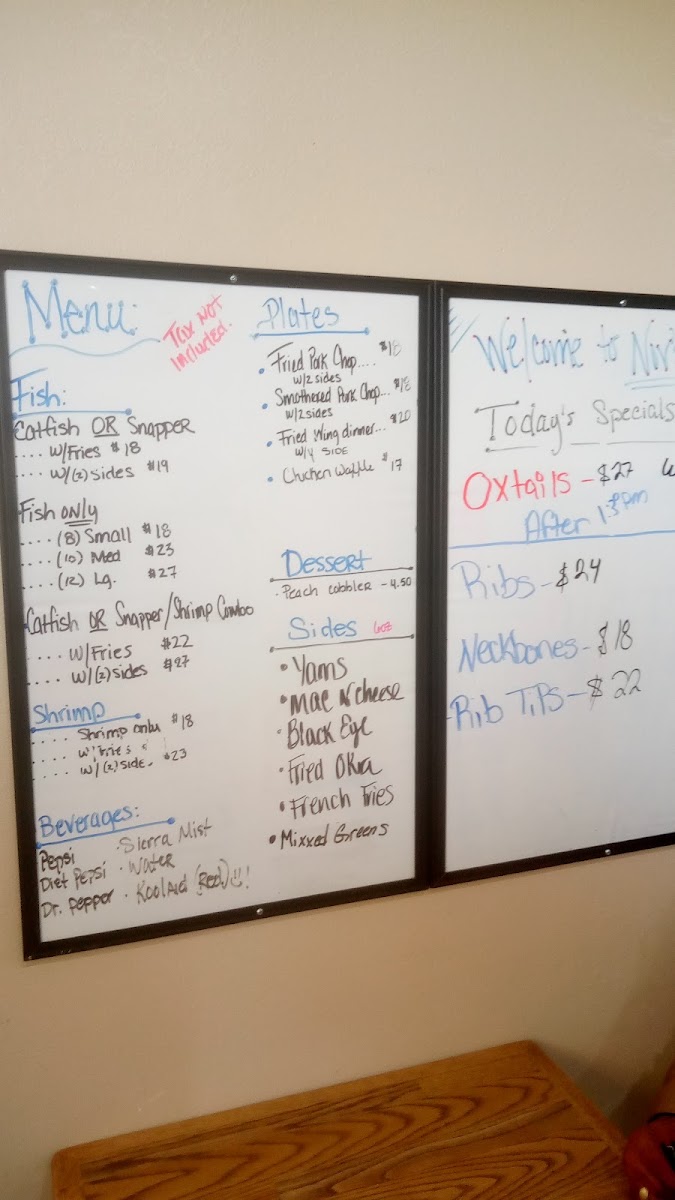 Menu:
Tax Not
Included.
Fish:
Catfish OR Snapper
.... w/Fries $18
... w/(2) sides $19
Fish only
.... (8) Small $18
.... (10) Med $23
.... (12) Lg. $27
Catfish OR Snapper/Shrimp Combo
.... w/Fries $22
.... w/(2) sides $27
Shrimp
.... Shrimp only $18
.... w/fries
.... w/(2) side. $23
Beverages:
Pepsi · Sierra Mist
Diet Pepsi · Water
Dr. Pepper · KoolAid (Red) !
Plates
• Fried Pork Chop.... $18
w/2 sides
• Smothered Pork Chop... $18
w/2 sides
• Fried Wing dinner... $20
SIDE
• Chicken Waffle $17
Dessert
· Peach cobbler - 4.50
Sides
• Yams
• Mac N cheese
• Black Eye
• Fried Okra
• French Fries
• Mixxed Greens
Welcome to
Today's Specials
Oxtails - $27
After
Ribs - $24
Neckbones - $18
Rib TiPs - $22